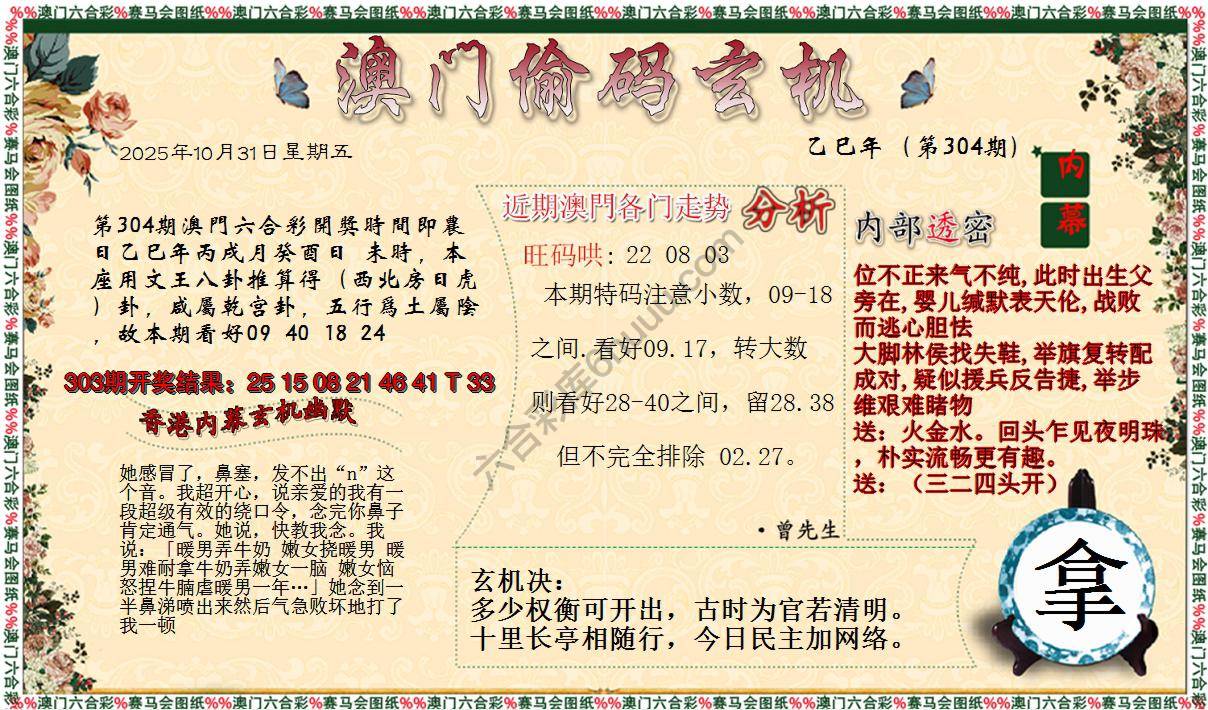 %%澳门六合彩%赛马会图纸%%澳门六合彩%赛马会图纸%%澳门六合彩%赛马会图纸%%澳门六合彩%赛马会图纸%%澳门六合彩%赛马会图纸%%澳门六合彩%赛马会图纸%%
澳门偷码玄机
2025年10月31日星期五
乙巳年（第304期）
内幕
第304期澳門六合彩開獎時間即農
日乙巳年丙戌月癸酉日 未時，本
座用文王八卦推算得（西北房日虎
）卦，咸屬乾宫卦，五行爲土屬陰
，故本期看好09 40 18 24
303期开奖结果：25 15 08 21 46 41 T 33
香港内幕玄机幽默
她感冒了，鼻塞，发不出“n”这
个音。我超开心，说亲爱的我有一
段超级有效的绕口令，念完你鼻子
肯定通气。她说，快教我念。我
说：「暖男弄牛奶 嫩女挠暖男 暖
男难耐拿牛奶弄嫩女一脑 嫩女恼
怒捏牛腩虐暖男一年…」她念到一
半鼻涕喷出来然后气急败坏地打了
我一顿
近期澳門各门走势 分析
旺码哄: 22 08 03
本期特码注意小数，09-18
之间.看好09.17，转大数
则看好28-40之间，留28.38
但不完全排除 02.27。
·曾先生
内部透密
位不正来气不纯,此时出生父
旁在,婴儿缄默表天伦,战败
而逃心胆怯
大脚林侯找失鞋,举旗复转配
成对,疑似援兵反告捷,举步
维艰难睹物
送：火金水。回头乍见夜明珠
，朴实流畅更有趣。
送：（三二四头开）
玄机决：
多少权衡可开出，古时为官若清明。
十里长亭相随行，今日民主加网络。
拿
%%澳门六合彩%赛马会图纸%%澳门六合彩%赛马会图纸%%澳门六合彩%赛马会图纸%%澳门六合彩%赛马会图纸%%澳门六合彩%赛马会图纸%%澳门六合彩%赛马会图纸%%